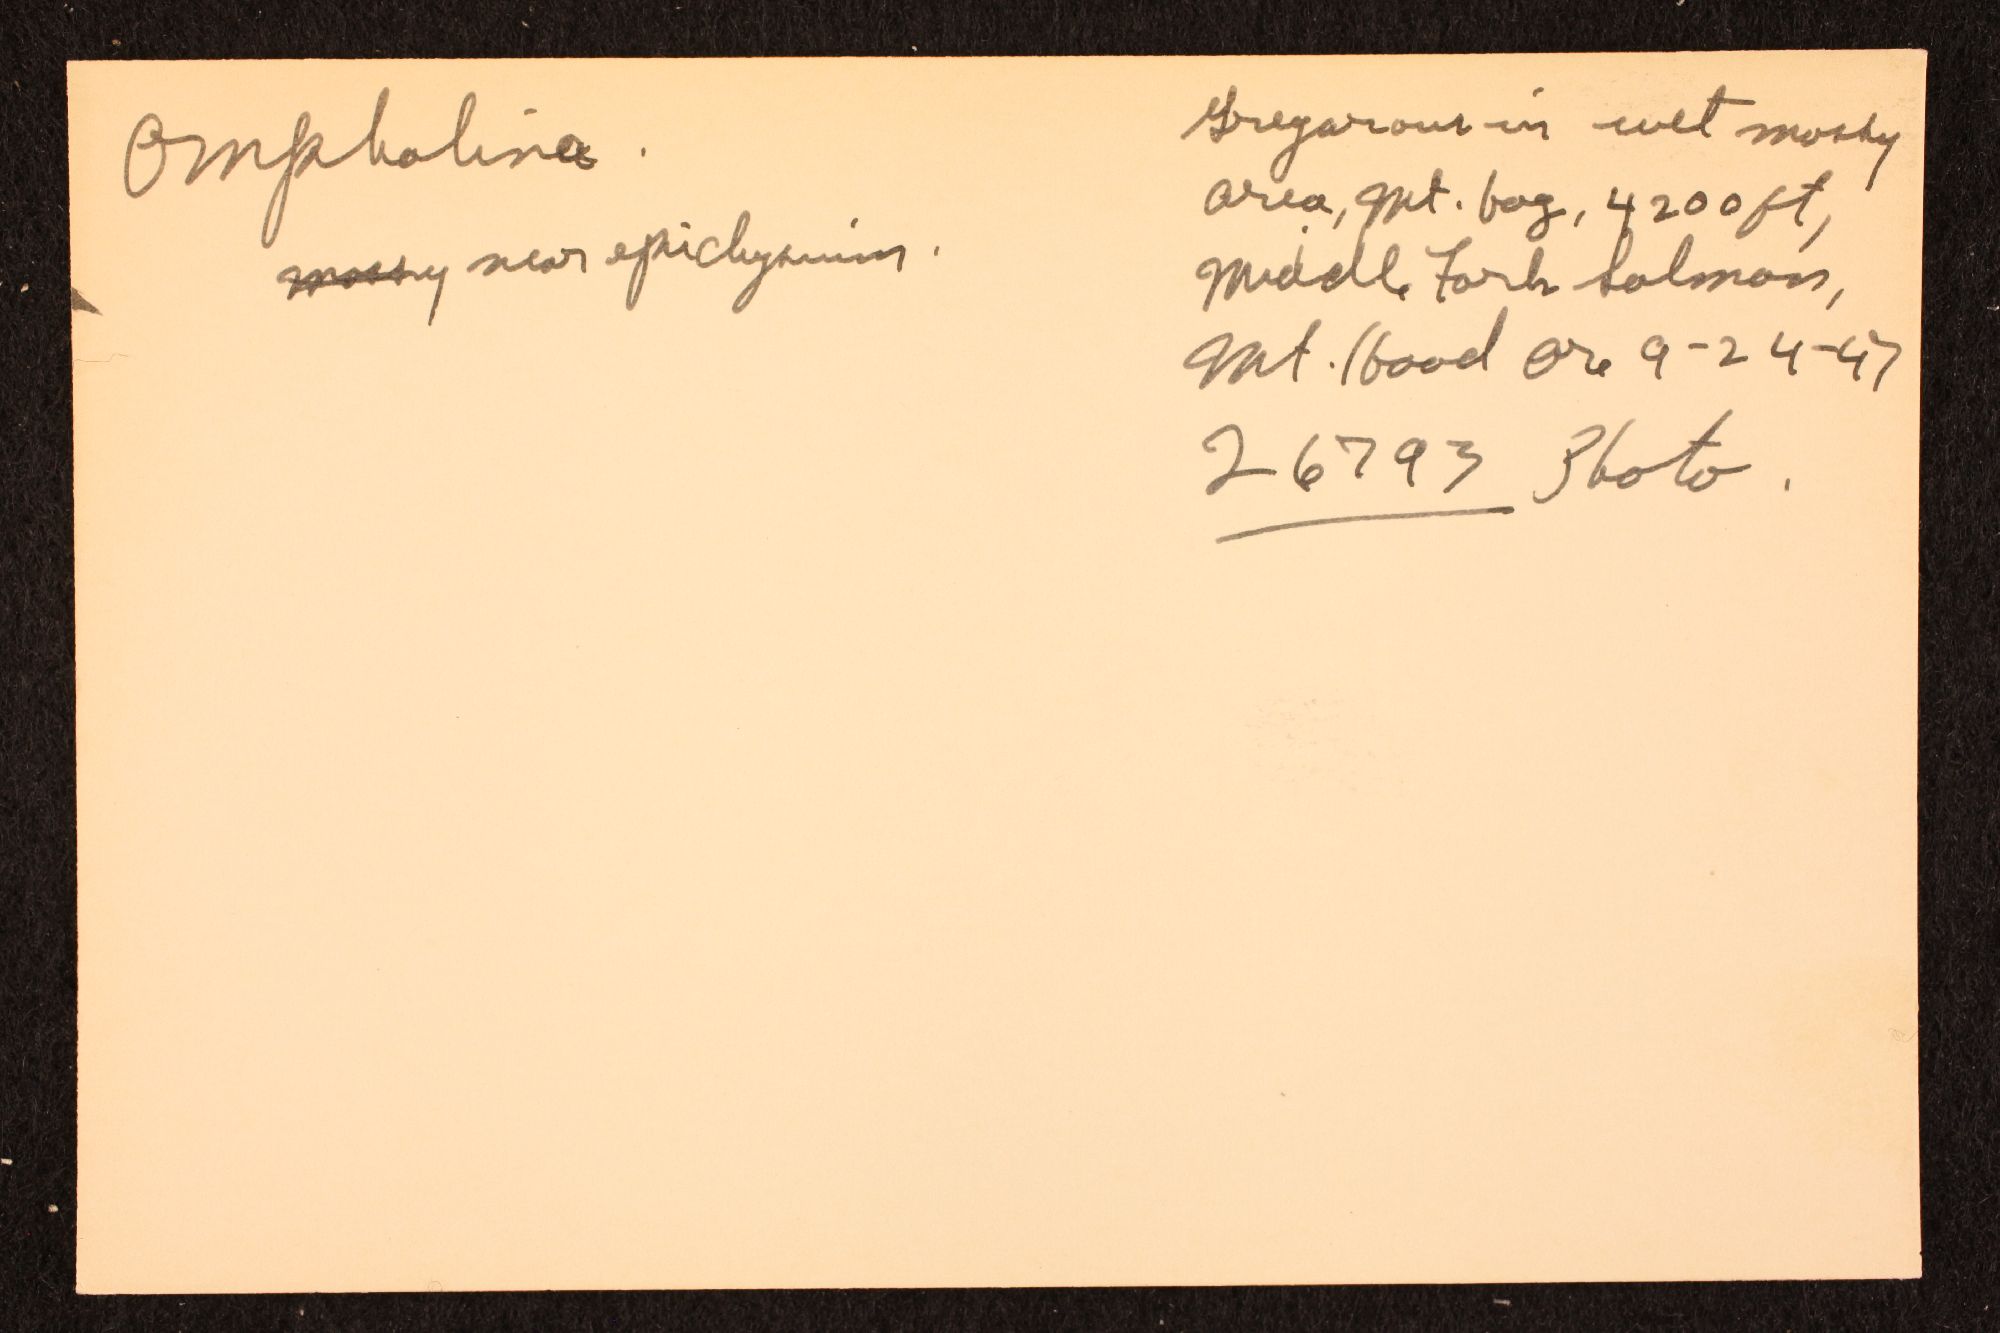 Omphalina.
mossy near epichysium.
Gregarious in wet mossy
area, Mt. bog, 4200 ft,
Middle Fork Salmon,
Mt. Hood Ore 9-24-47
26793 Photo.